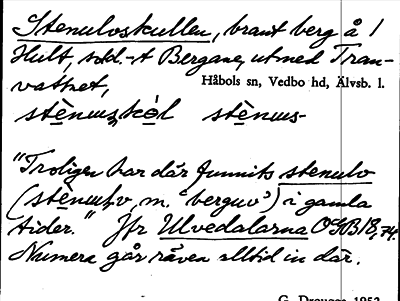 Stenuloskullen, brant berg å 1
Hult, sdd.-t Bergane, utmed Tran-
vattnet,
Håbols sn, Vedbo hd, Älvsb. l.
"Troligen har där funnits stenulv
m. 'berguv') i gamla
tider." Jfr Ulvedalarna OGB 18, 74.
Numera går räven alltid in där.